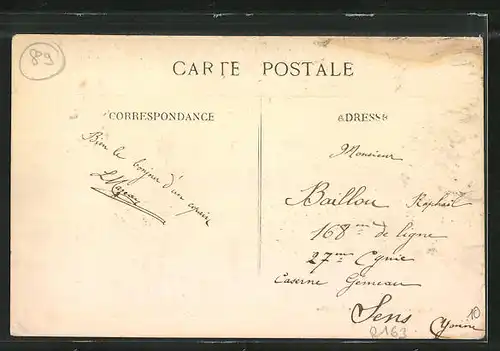 89
CARTE POSTALE
CORRESPONDANCE
ADRESSE
Bien le bonjour d'un copain
Monsieur
Baillou Raphaël
168ème de ligne
27ème Cgnie
Caserne Gémeau
Sens
Yonne
10
R163